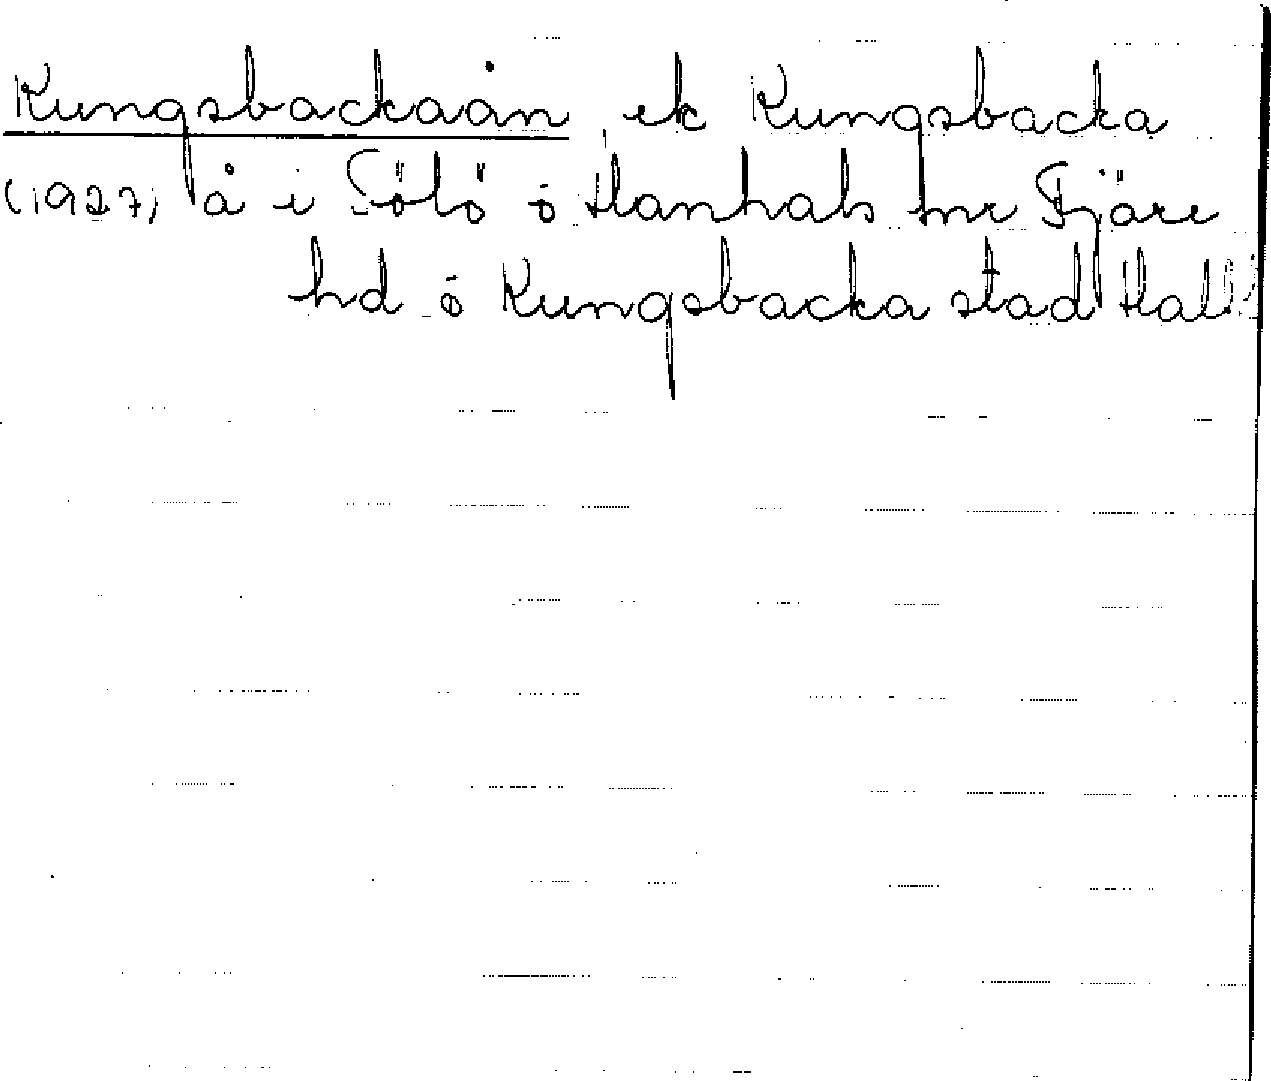 Kungsbackaån ek Kungsbacka
(1927) å i Tölö o Hanhals snr Fjäre
hd o Kungsbacka stad Hall